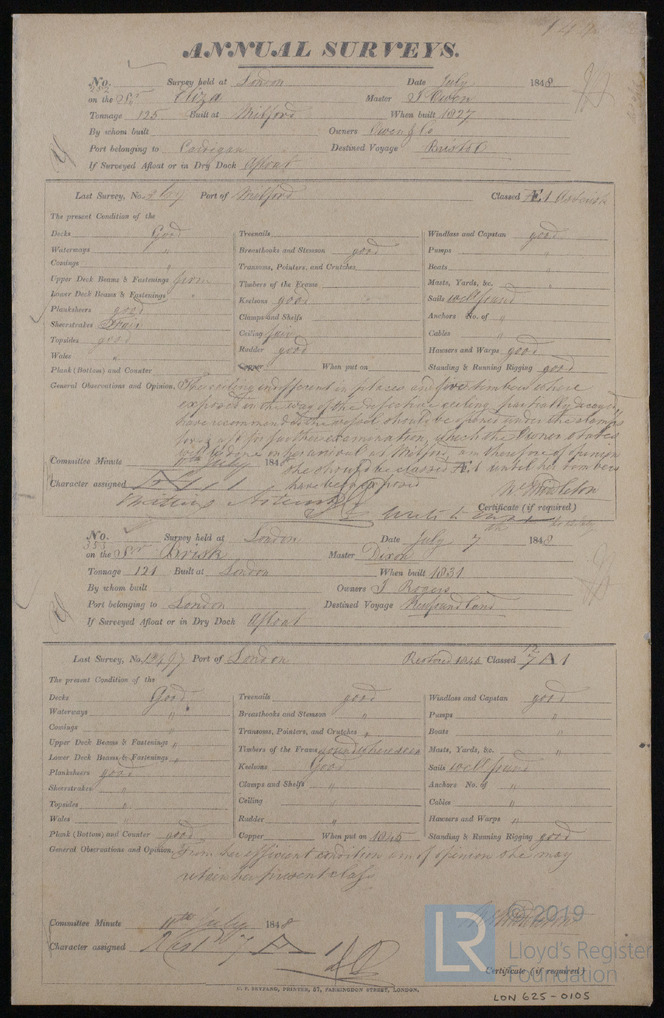 ANNUAL SURVEYS.
No. Survey held at London Date July 1848
on the Sr Eliza Master J Owen
Tonnage 125 Built at Milford When built 1827
By whom built Owners Owen & Co
Port belonging to Cardigan Destined Voyage Bristol
If Surveyed Afloat or in Dry Dock Afloat
Last Survey, No. Port of Milford Classed Æ 1 Asterisk
The present Condition of the
Decks Good
Waterways "
Comings "
Upper Deck Beams & Fastenings
Lower Deck Beams & Fastenings "
Planksheers good
Sheerstrakes Fair
Topsides good
Wales "
Plank (Bottom) and Counter
Treenails
Breasthooks and Stemson good
Transoms, Pointers, and Crutches
Timbers of the Frame
Keelsons good
Clamps and Shelfs
Ceiling fair
Rudder good
Copper When put on
Windlass and Capstan good
Pumps "
Boats "
Masts, Yards, &c. "
Sails well found
Anchors No. of "
Cables "
Hawsers and Warps good
Standing & Running Rigging good
General Observations and Opinion, The ceiling indifferent in places and five timbers where
exposed in the way of the defective ceiling partially decayed
have recommended the vessel should be opened under the clamps
fore & aft for further examination, which the Owner states
will be done on her arrival at Milford, am therefore of opinion
she should be classed Æ 1 until her timbers
have been exposed
Committee Minute July 1848
Character assigned Æ 1
Certificate (if required)
Write to
No. 353 Survey held at London Date July 7 1848
on the Sr Brisk Master Dixon
Tonnage 121 Built at London When built 1831
By whom built Owners J Rogers
Port belonging to London Destined Voyage Newfoundland
If Surveyed Afloat or in Dry Dock Afloat
Last Survey, No. Port of London Restored Classed A 1
The present Condition of the
Decks Good
Waterways "
Comings "
Upper Deck Beams & Fastenings "
Lower Deck Beams & Fastenings "
Planksheers good
Sheerstrakes "
Topsides "
Wales "
Plank (Bottom) and Counter good
Treenails good
Breasthooks and Stemson "
Transoms, Pointers, and Crutches "
Timbers of the Frame sound where seen
Keelsons Good
Clamps and Shelfs "
Ceiling "
Rudder "
Copper When put on 1845
Windlass and Capstan good
Pumps "
Boats "
Masts, Yards, &c. "
Sails well found
Anchors No. of "
Cables "
Hawsers and Warps "
Standing & Running Rigging good
General Observations and Opinion, From her efficient condition am of opinion she may
retain her present class
Committee Minute 11th July 1848
Character assigned A 1
Certificate (if required)
LR © 2019
Lloyd's Register
Foundation
LON 625-0105